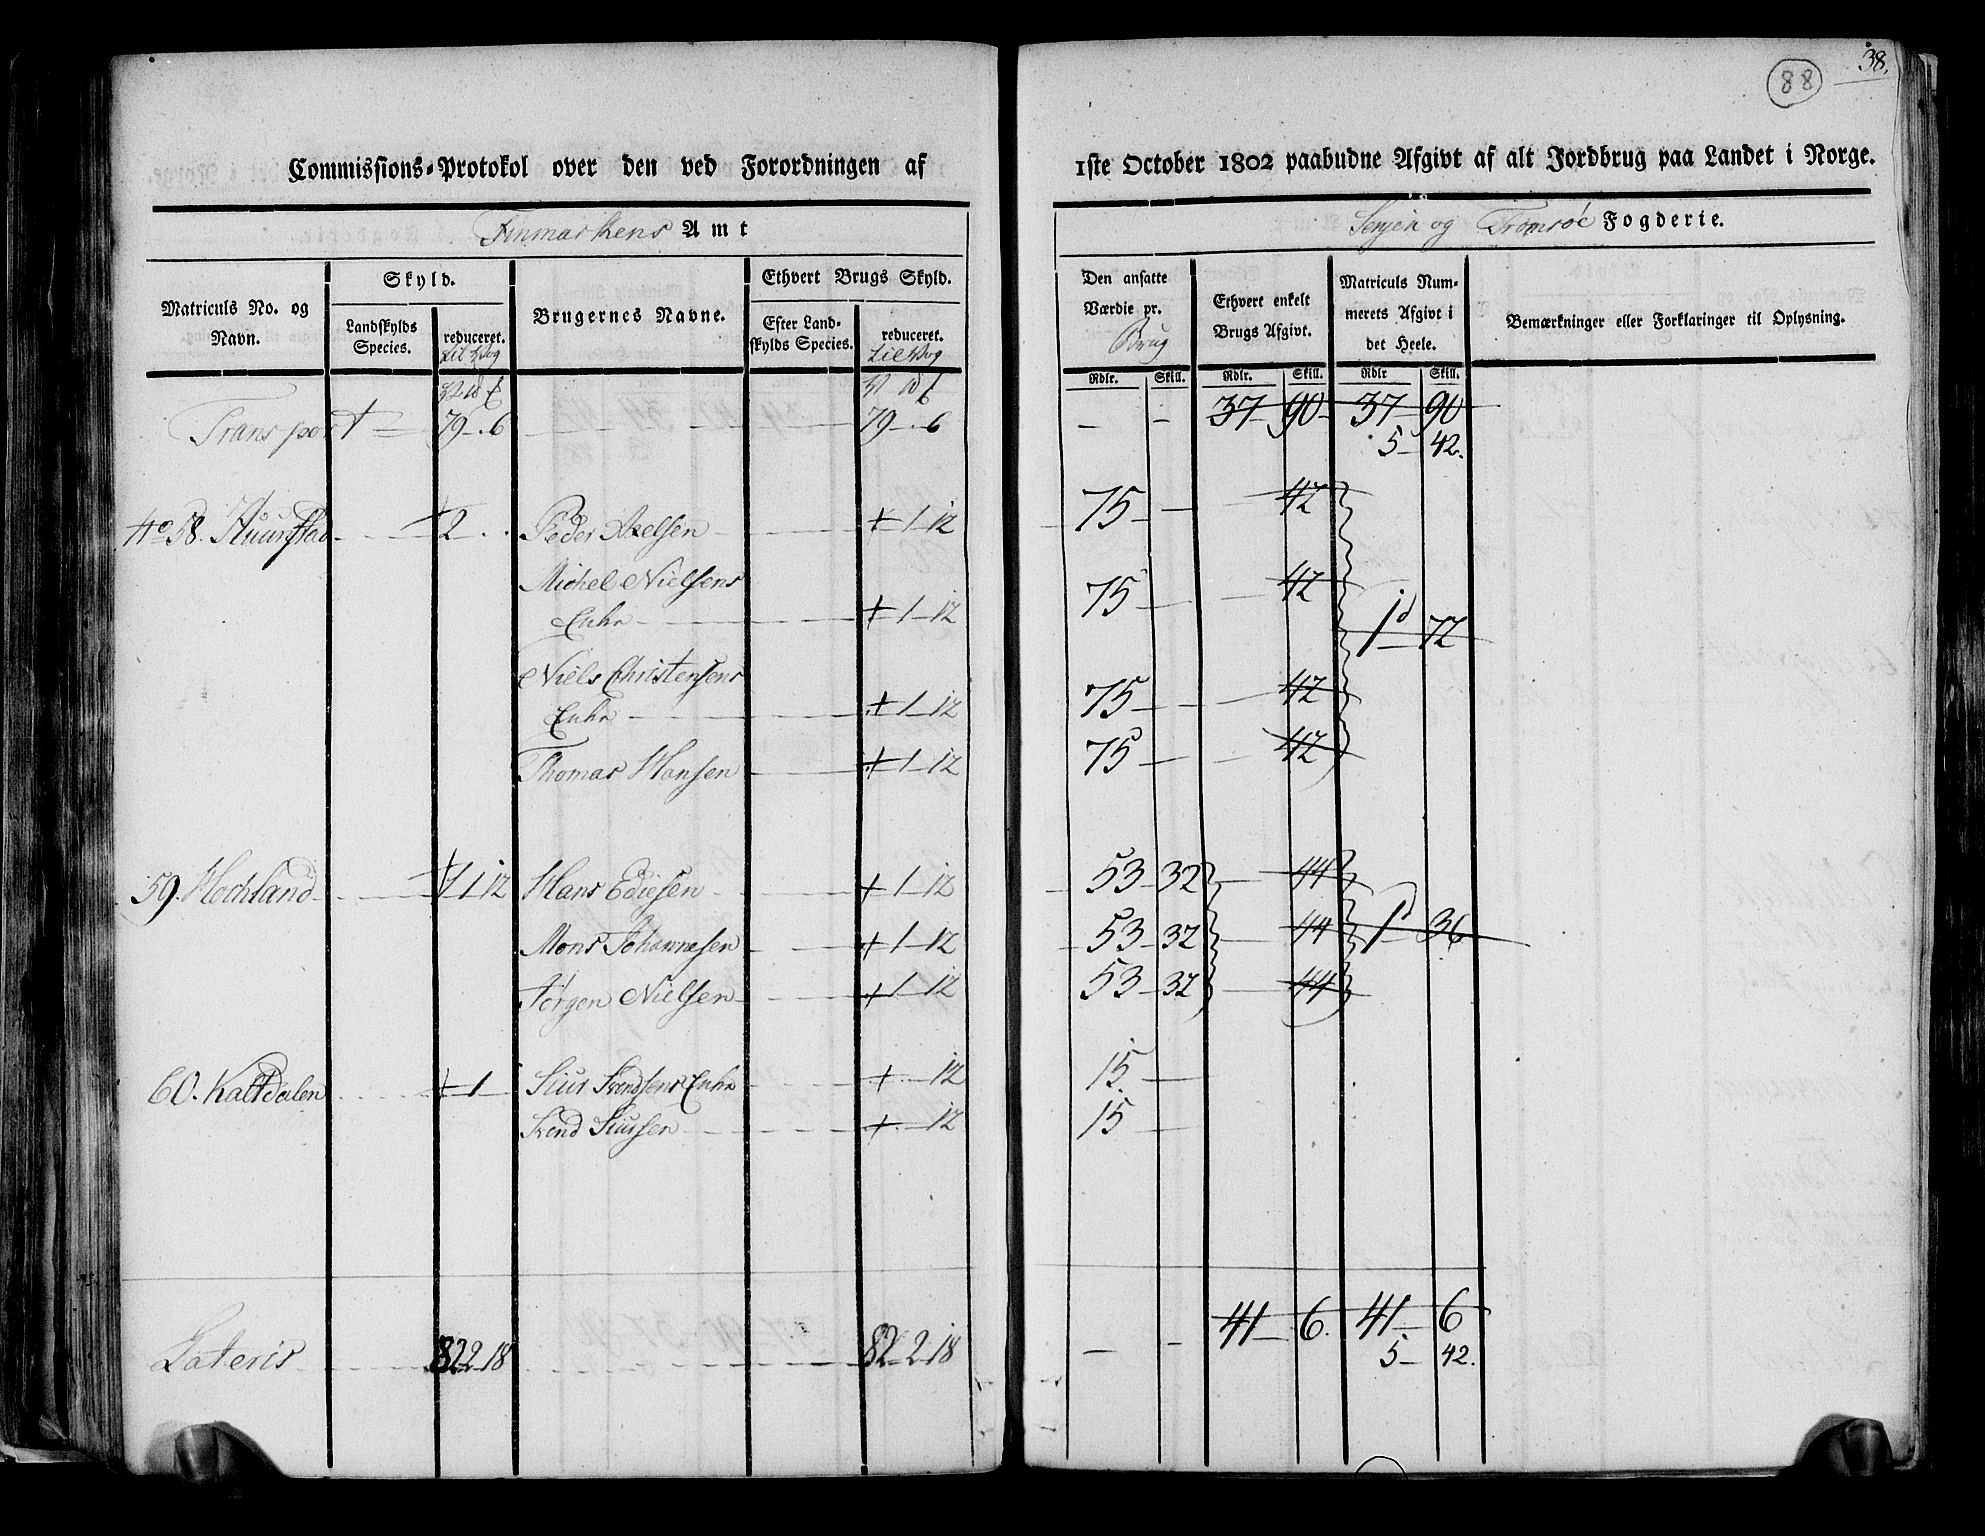 38.
88
Commissions-Protokol over den ved Forordningen af 1ste October 1802 paabudne Afgivt af alt Jordbrug paa Landet i Norge.
Finmarkens Amt
Senjen og Tromsöe Fogderie.
Matriculs No. og Navn.
Skyld.
Landskylds Species.
reduceret. til Wog
Brugernes Navne.
Ethvert Brugs Skyld.
Efter Landskylds Species.
reduceret. til Wog
Den ansatte Værdie pr. Brug
Ethvert enkelt Brugs Afgivt.
Matriculs Nummerets Afgivt i det Heele.
Bemærkninger eller Forklaringer til Oplysning.
Rdlr. Skill. Rdlr. Skill. Rdlr Skill.
Transport 79 - . 6 79 - . 6 - - 37 90 37 90
5 42.
No 58. 2 . . Peder Axelsen + 1 - 12 75 - - 42
Michel Nielsens
Enke + 1 - 12 75 - - 42
1 72
Niels Christensens
Enke + 1 - 12 75 - - 42
Thomas Hansen + 1 - 12 75 - - 42
59. Hochland 1 12 Hans Ediesen + 1 - 12 53 - 32 - 44
Mons Johannesen + 1 - 12 53 - 32 - 44 1 36
Jörgen Nielsen + 1 - 12 53 - 32 - 44
60. Kaltdalen + 1 Siur Svendsens Enke + . - 12 15 -
Svend Siursen + . - 12 15 -
Lateris 82 2 18 82 - 2 - 18 - - 41 6. 41 6
5 - 42.